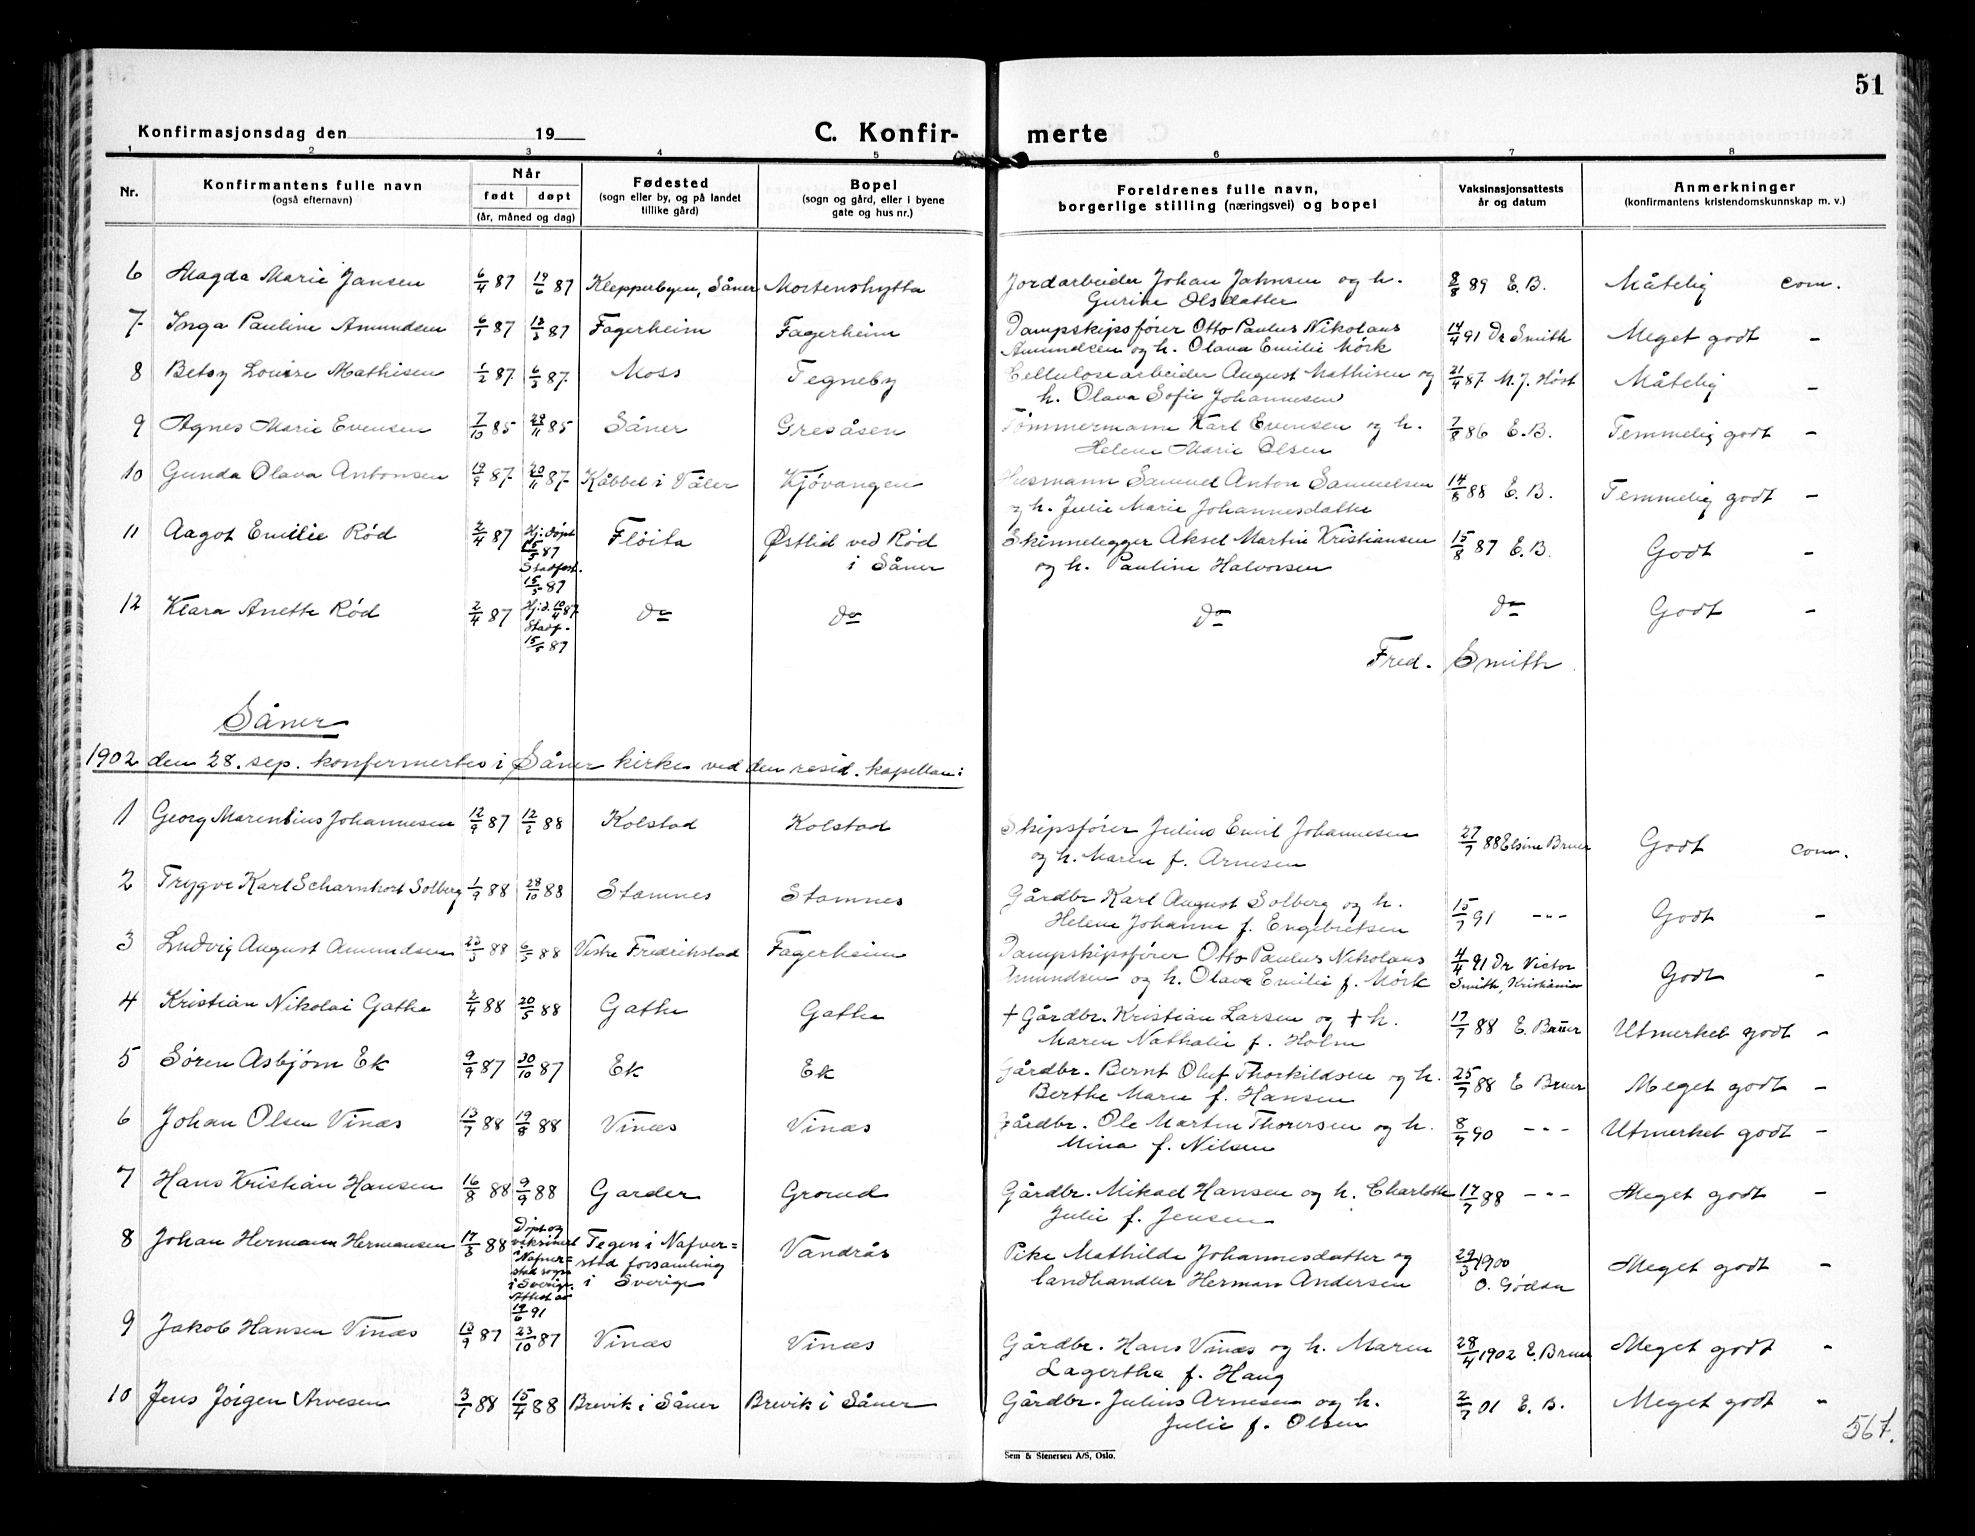 51
Konfirmasjonsdag den 19
C. Konfir- merte
1 2 3 4 5 6 7 8
Nr. Konfirmantens fulle navn (også efternavn) Når født døpt (år, måned og dag) Fødested (sogn eller by, og på landet tillike gård) Bopel (sogn og gård, eller i byene gate og hus nr.) Foreldrenes fulle navn, borgerlige stilling (næringsvei) og bopel Vaksinasjonsattests år og datum Anmerkninger (konfirmantens kristendomskunnskap m. v.)
6 Magda Marie Jansen 6/4 87 19/6 87 Klepperbyen, Såner Mortenshytta Jordarbeider Johan Jahnsen og h. 8/8 89 E.B. Måtelig com.
Gurine Olsdatter
7 Inga Pauline Amundsen 6/1 87 13/3 87 Fagerheim Fagerheim Dampskipsfører Otto Paulus Nikolaus 14/4 91 Dr Smith Meget godt -
Amundsen og h. Olava Emilie Mörk
8 Betsy Louise Mathisen 1/2 87 6/3 87 Moss Tegneby Cellulosearbeider August Mathisen og 21/4 87 M.J. Høst Måtelig -
h. Olava Sofie Johannesen
9 Agnes Marie Evensen 7/10 85 29/11 85 Såner Gresåsen Tømmermann Karl Evensen og h. 7/8 86 E.B. Temmelig godt -
Helene Marie Olsen
10 Gunda Olava Antonsen 19/9 87 20/11 87 Kåbbel i Våler Kjøvangen Husmann Samuel Anton Samuelsen 14/8 88 E.B. Temmelig godt -
og h. Julie Marie Johannesdatter
11 Aagot Emilie Rød 2/4 87 Hj. døpt Fløita Østlid ved Rød Skinnelegger Aksel Martin Kristiansen 15/8 87 E.B. Godt -
15/5 87 i Såner og h. Pauline Halvorsen
Stadfest.
15/5 87
12 Klara Anette Rød 2/4 87 Hj. d. 10/4 87 do do do do Godt -
Stadf.
15/5 87
Fred. Smith
Såner
1902 den 28. sep. konfermertes i Såner kirke ved den resid. kapellan:
1 Georg Marentius Johannesen 12/9 87 12/2 88 Kolstad Kolstad Skipsfører Julius Emil Johannesen 27/7 88 Elsine Bruer Godt com.
og h. Maren f. Arnesen
2 Trygve Karl Scharnhort Solberg 1/9 88 28/10 88 Stamnes Stamnes Gårdbr. Karl August Solberg og h. 15/7 91 -"- Godt -
Helene Johanne f. Engebretsen
3 Ludvig August Amundsen 23/3 88 6/5 88 Vestre Fredrikstad Fagerheim Dampskipsfører Otto Paulus Nikolaus 4/4 91 Dr Victor Godt -
Amundsen og h. Olava Emilie f. Mörk Smith, Kristiania
4 Kristian Nikolai Gathe 2/4 88 20/5 88 Gathe Gathe † Gårdbr. Kristian Larsen og † h. 17/7 88 E. Bruer Utmerket godt -
Maren Nathalie f. Holm
5 Søren Asbjørn Ek 9/9 87 30/10 87 Ek Ek Gårdbr. Bernt Oluf Thorkildsen og h. 25/7 88 E Bruer Meget godt -
Berthe Marie f. Hansen
6 Johan Olsen Vinæs 13/7 88 19/8 88 Vinæs Vinæs Gårdbr. Ole Martin Thoresen og h. 8/7 90 -"- Utmerket godt -
Mina f. Nilsen
7 Hans Kristian Hansen 16/8 88 9/9 88 Garder Grorud Gårdbr. Mikael Hansen og h. Charlotte 17/7 88 -"- Meget godt -
Julie f. Jensen
8 Johan Hermann Hermansen 17/3 88 Døpt og vaksinert i Nafverstad sogn i Sverige. Attest av 19/6 91 Tegen i Nafver=stad forsamling i Sverige Vandrås Pike Mathilde Johannesdatter og 29/3 1900 Meget godt -
landhandler Herman Andersen
9 Jakob Hansen Vinæs 13/9 87 23/10 87 Vinæs Vinæs Gårdbr. Hans Vinæs og h. Maren 28/4 1902 E. Bruer Meget godt -
Lagertha f. Haug
10 Jens Jörgen Arvesen 3/1 88 15/4 88 Brevik i Såner Brevik i Såner Gårdbr. Julius Arnesen og h. 2/7 01 E.B. Meget godt "
Julie f. Olsen
567.
Sem & Stenersen A/S, Oslo.